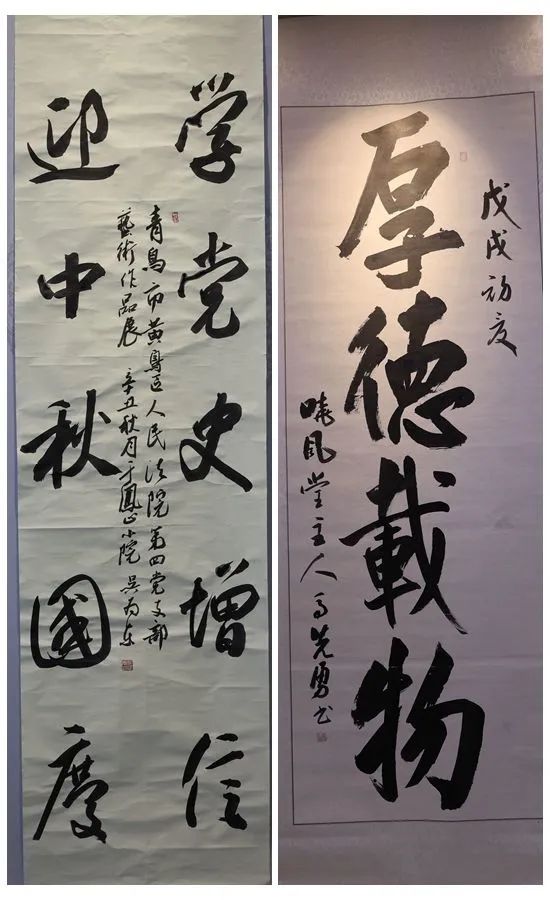 学党史增信
迎中秋國慶
青島市黄島区人民法院第四党支部
藝術作品展 辛丑秋月于鳳山小院 吴为东
戊戌初夏
厚德載物
晓風堂主人马先勇书